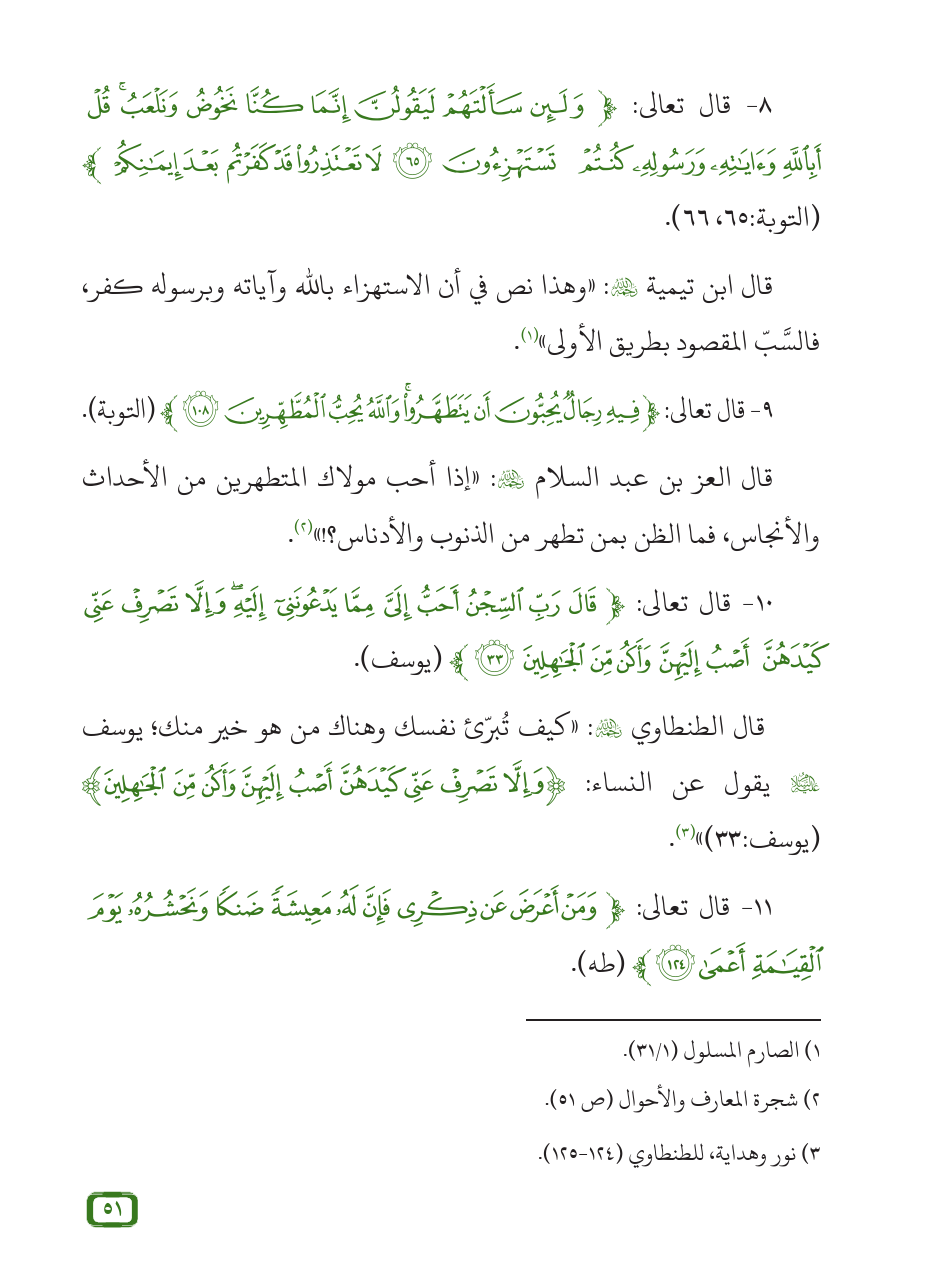 ٨- قال تعالى: ﴿ وَلَئِن سَأَلْتَهُمْ لَيَقُولُنَّ إِنَّمَا كُنَّا نَخُوضُ وَنَلْعَبُ ۚ قُلْ
أَبِٱللَّهِ وَءَايَٰتِهِۦ وَرَسُولِهِۦ كُنتُمْ تَسْتَهْزِءُونَ ٦٥ لَا تَعْتَذِرُوا۟ قَدْ كَفَرْتُم بَعْدَ إِيمَٰنِكُمْ ﴾
(التوبة:٦٥، ٦٦).
قال ابن تيمية رحمه الله: «وهذا نص في أن الاستهزاء بالله وآياته وبرسوله كفر،
فالسَّبّ المقصود بطريق الأولى»(١).
٩- قال تعالى: ﴿ فِيهِ رِجَالٌ يُحِبُّونَ أَن يَتَطَهَّرُوا۟ ۚ وَٱللَّهُ يُحِبُّ ٱلْمُطَّهِّرِينَ ١٠٨ ﴾ (التوبة).
قال العز بن عبد السلام رحمه الله: «إذا أحب مولاك المتطهرين من الأحداث
والأنجاس، فما الظن بمن تطهر من الذنوب والأدناس؟!»(٢).
١٠- قال تعالى: ﴿ قَالَ رَبِّ ٱلسِّجْنُ أَحَبُّ إِلَىَّ مِمَّا يَدْعُونَنِىٓ إِلَيْهِ ۖ وَإِلَّا تَصْرِفْ عَنِّى
كَيْدَهُنَّ أَصْبُ إِلَيْهِنَّ وَأَكُن مِّنَ ٱلْجَٰهِلِينَ ٣٣ ﴾ (يوسف).
قال الطنطاوي رحمه الله: «كيف تُبرّئ نفسك وهناك من هو خير منك؛ يوسف
عليه السلام يقول عن النساء: ﴿وَإِلَّا تَصْرِفْ عَنِّى كَيْدَهُنَّ أَصْبُ إِلَيْهِنَّ وَأَكُن مِّنَ ٱلْجَٰهِلِينَ﴾
(يوسف:٣٣)»(٣).
١١- قال تعالى: ﴿ وَمَنْ أَعْرَضَ عَن ذِكْرِى فَإِنَّ لَهُۥ مَعِيشَةً ضَنكًا وَنَحْشُرُهُۥ يَوْمَ
ٱلْقِيَٰمَةِ أَعْمَىٰ ١٢٤ ﴾ (طه).
١) الصارم المسلول (٣١/١).
٢) شجرة المعارف والأحوال (ص ٥١).
٣) نور وهداية، للطنطاوي (١٢٤-١٢٥).
٥١